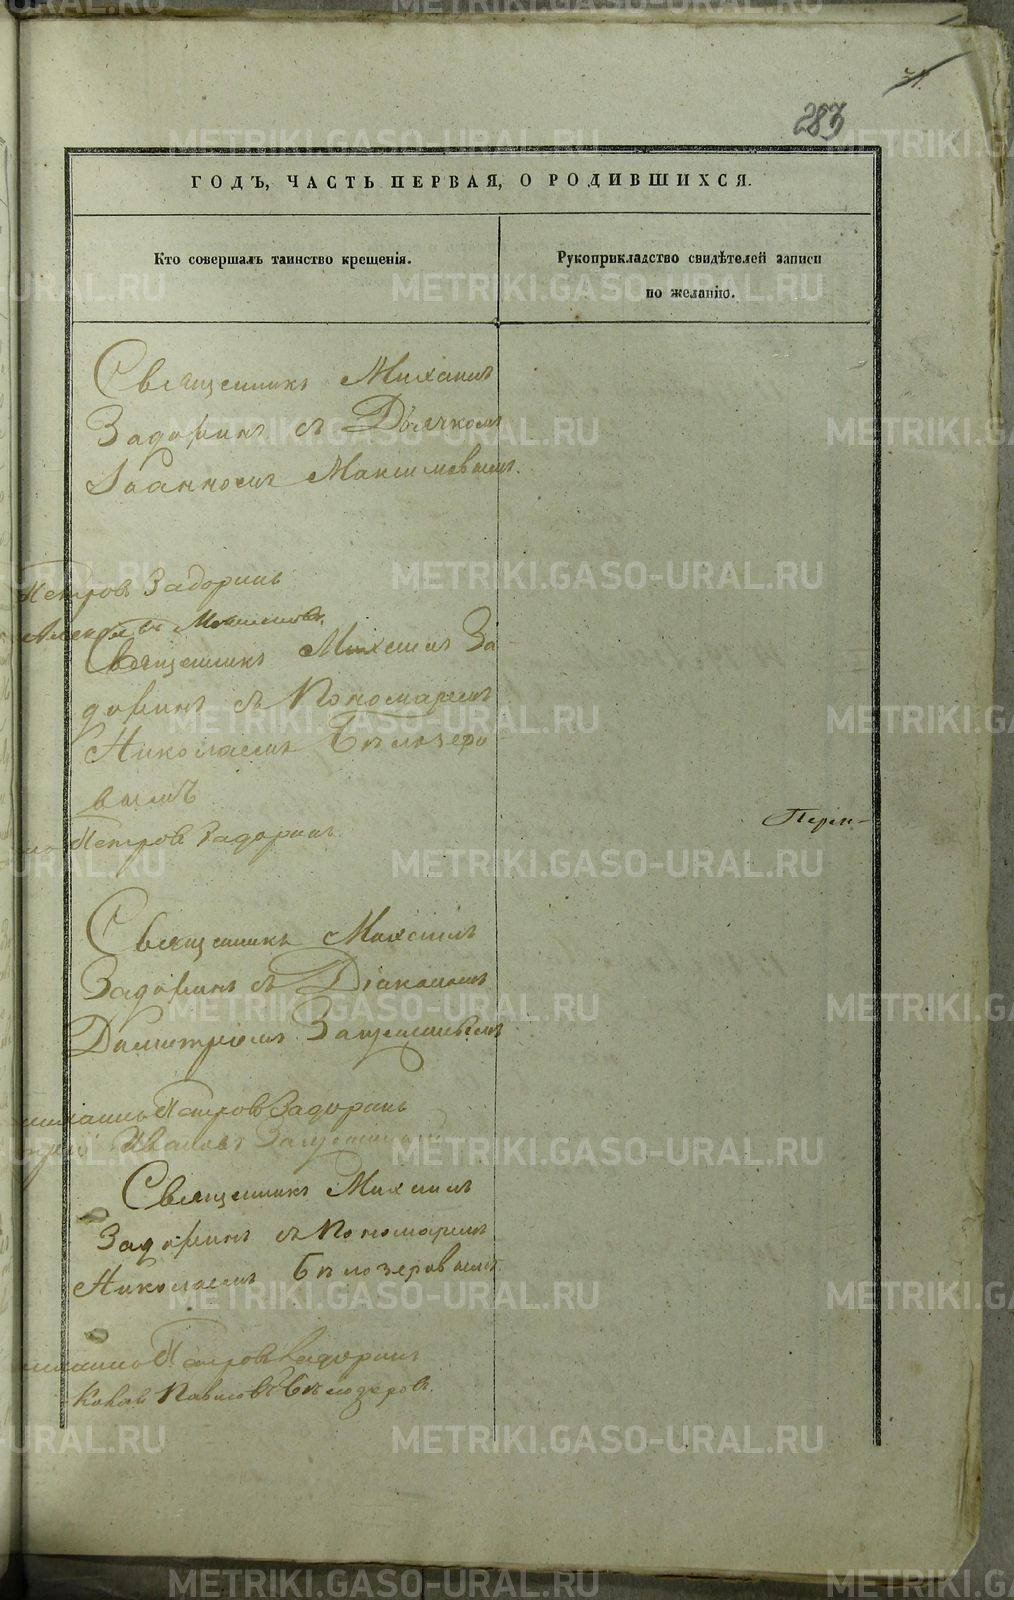 283
ГОДЪ, ЧАСТЬ ПЕРВАЯ, О РОДИВШИХСЯ.
Кто совершалъ таинство крещенія.
Рукоприкладство свидѣтелей записи
по желанію.
Священникъ Михаилъ
Задоринъ съ Дьячкомъ
Іоанномъ Максимовымъ.
Петровъ Задоринъ
Священникъ Михаилъ За
доринъ съ Пономаремъ
Николаемъ Бѣлозеро
вымъ
Петровъ Задоринъ
Перм-
Священникъ Михаилъ
Задоринъ съ Діакономъ
Димитріемъ
Петровъ Задоринъ
Ивановъ
Священникъ Михаилъ
Задоринъ съ Пономаремъ
Николаемъ Бѣлозеровымъ
Петровъ Задоринъ
Павловъ Бѣлозеровъ.
METRIKI.GASO-URAL.RU